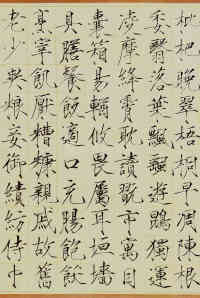 枇杷晚翠梧桐早凋陳根
委翳落葉飄颻遊鵾獨運
凌摩絳霄耽讀翫市寓目
囊箱易輶攸畏屬耳垣牆
具膳餐飯適口充腸飽飫
烹宰飢厭糟糠親戚故舊
老少異糧妾御績紡侍巾